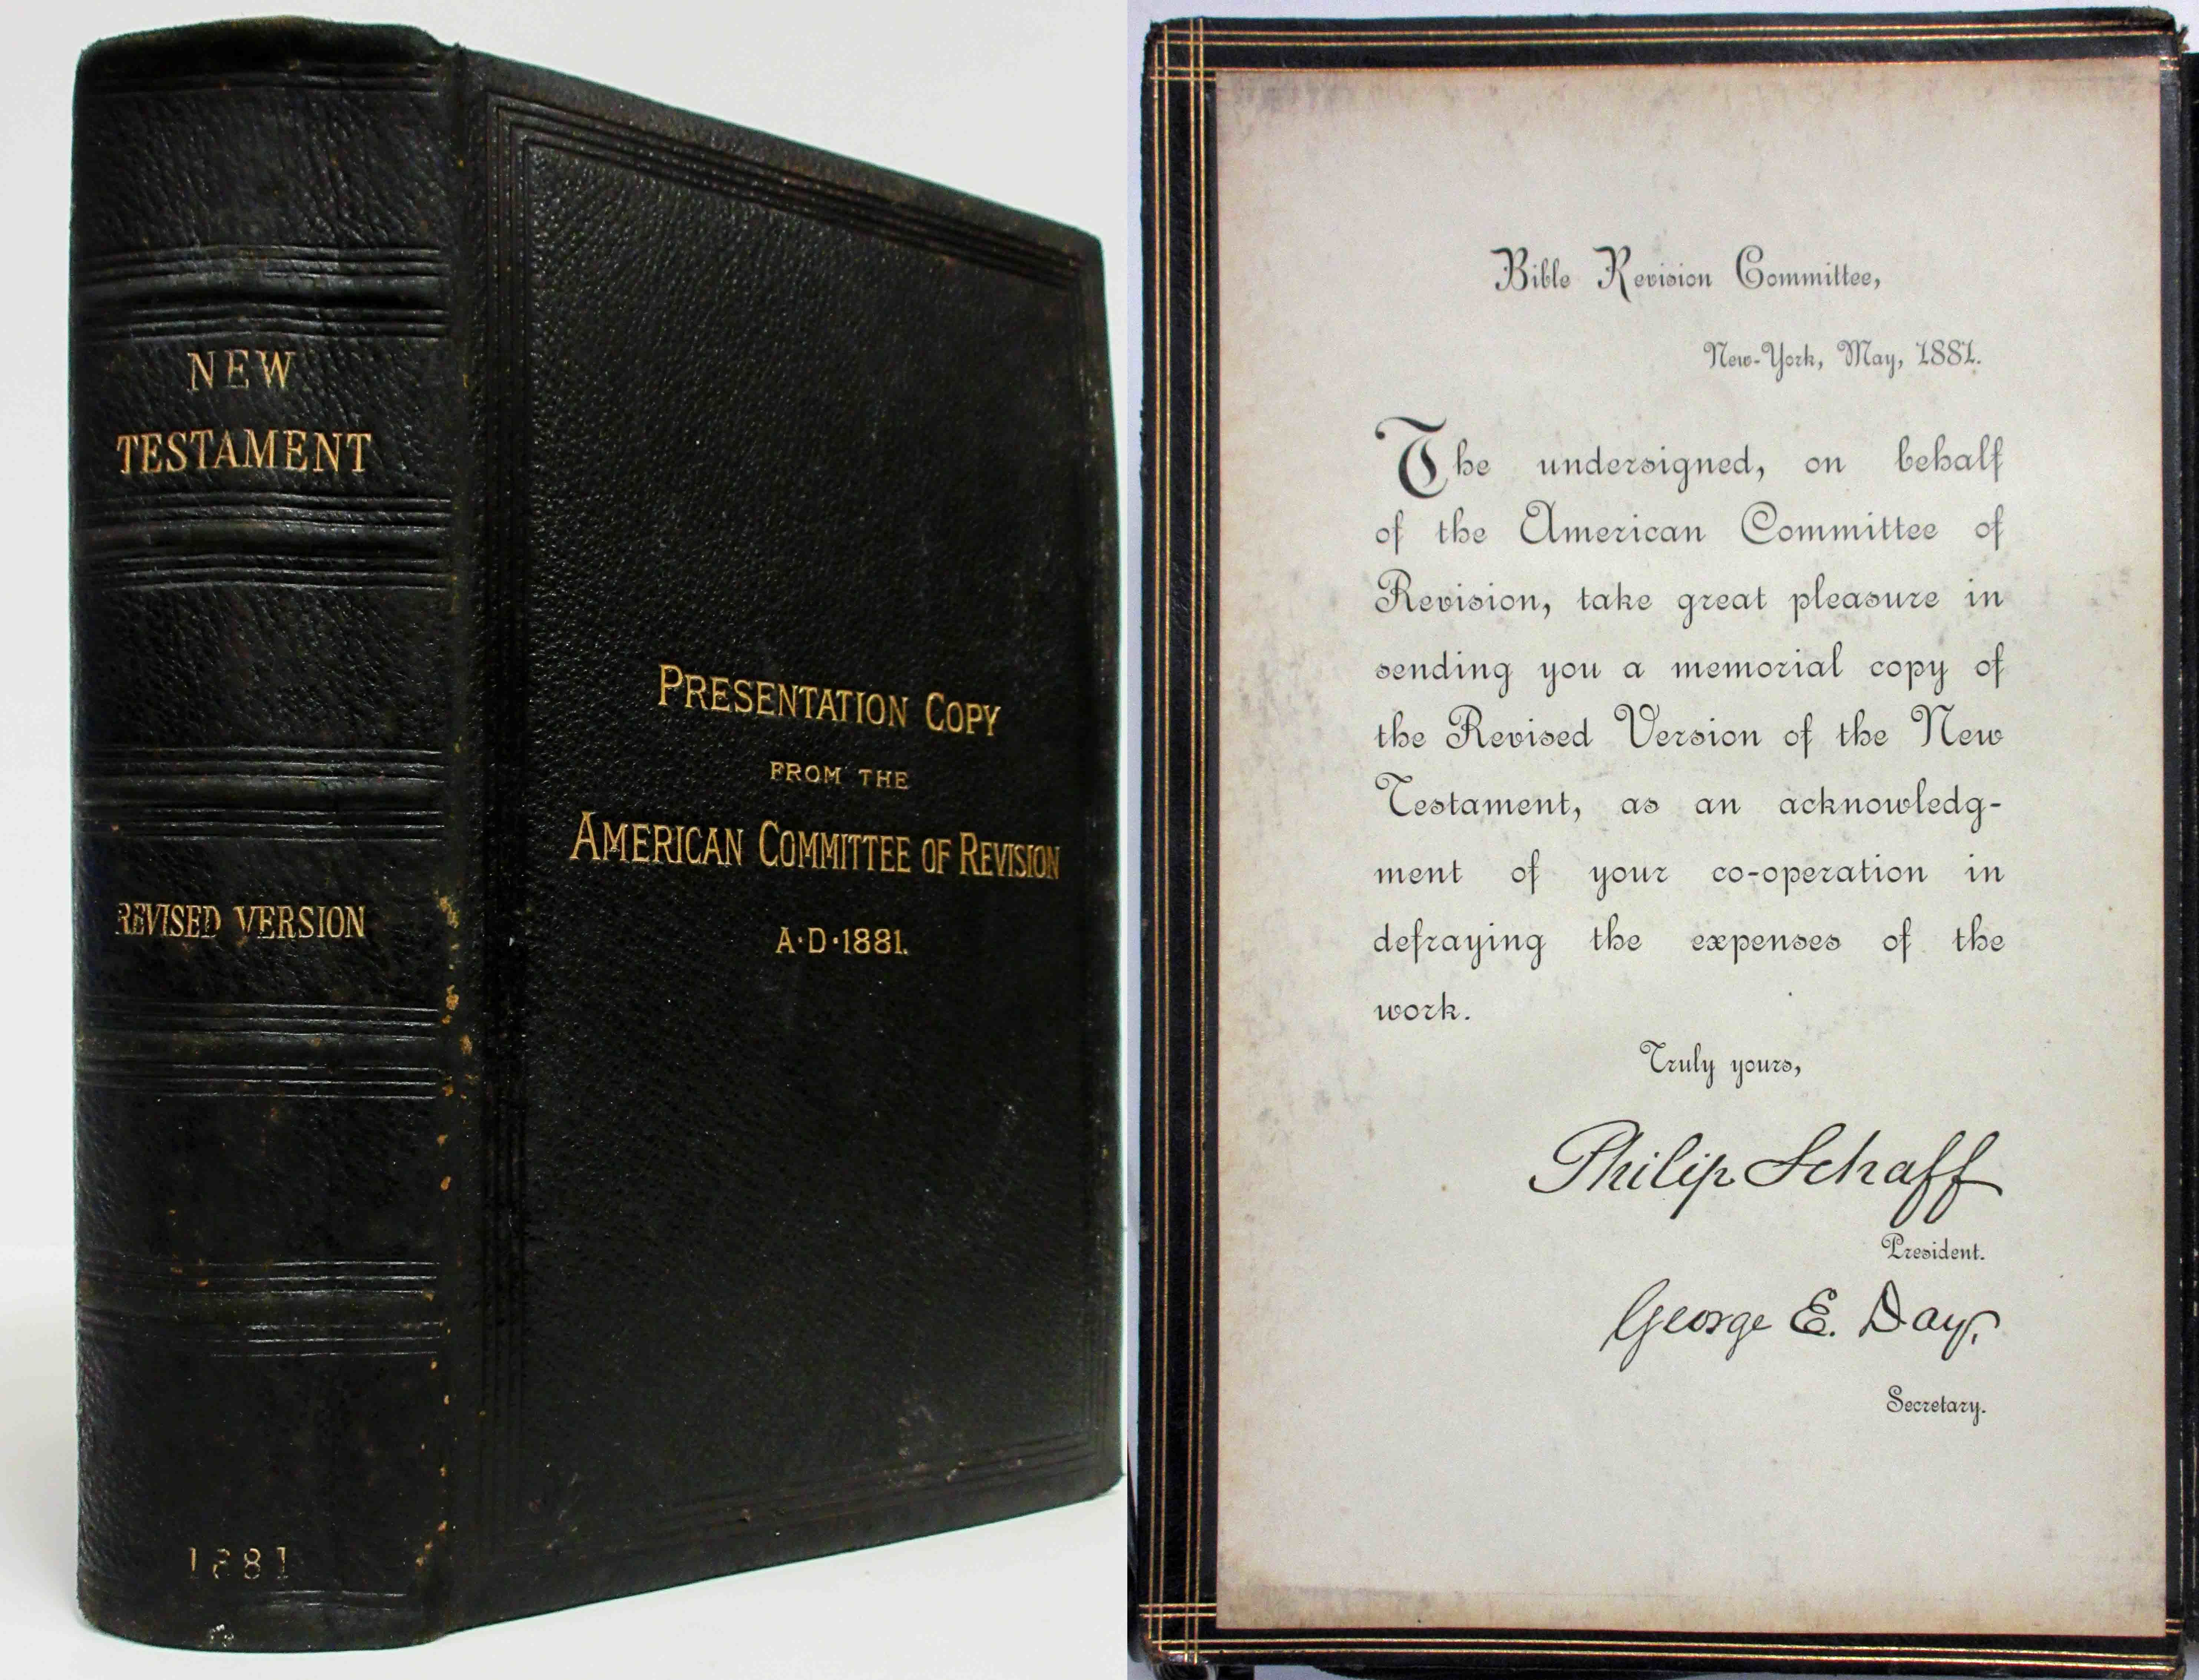 NEW
TESTAMENT
REVISED VERSION
1881
PRESENTATION COPY
FROM THE
AMERICAN COMMITTEE OF REVISION
A·D·1881.
Bible Revision Committee,
New-York, May, 1881.
The undersigned, on behalf
of the American Committee of
Revision, take great pleasure in
sending you a memorial copy of
the Revised Version of the New
Testament, as an acknowledg-
ment of your co-operation in
defraying the expenses of the
work.
Truly yours,
Philip Schaff
President.
George E. Day,
Secretary.